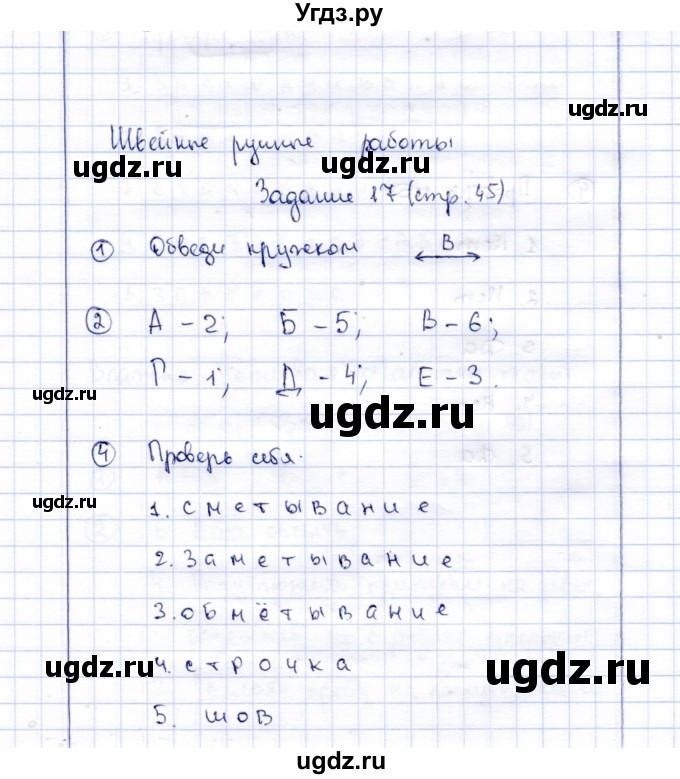 Угдз.ру
ugdz.ru
Швейные ручные работы
ugdz.ru ugdz.ru
Задание 17 (стр. 45)
① Обведи кружком В
② А – 2; Б – 5; В – 6;
Г – 1; Д – 4; Е – 3.
ugdz.ru ugdz.ru
④ Проверь себя.
ugdz.ru
1. сметывание
2. Заметывание
3. обмётывание
ugdz.ru 4. строчка ugdz.ru
5. шов
ugdz.ru